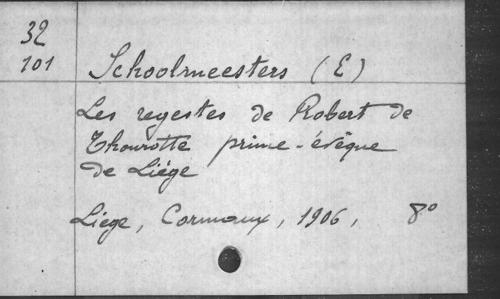 32
101
Schoolmeesters (E)
Les regestes de Robert de
Thourotte prince-évêque
de Liége
Liége, Cormaux, 1906, 8°